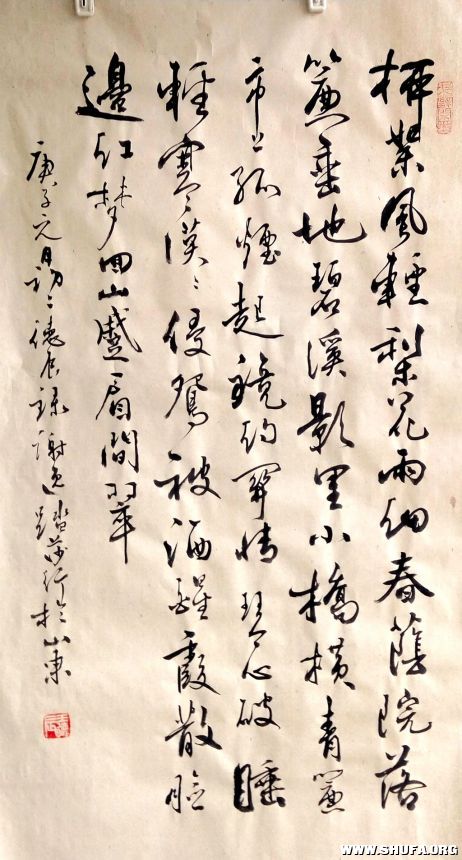 柳絮風輕梨花雨細春蔭院落
簾垂地碧溪影里小橋橫青簾
市上孤煙起鏡約關情琴心破睡
輕寒漠〻侵鴛被酒醒霞散臉
邊紅夢回山蹙眉間翠
庚子元月初二德辰錄謝逸踏莎行於山東
WWW.SHUFA.ORG